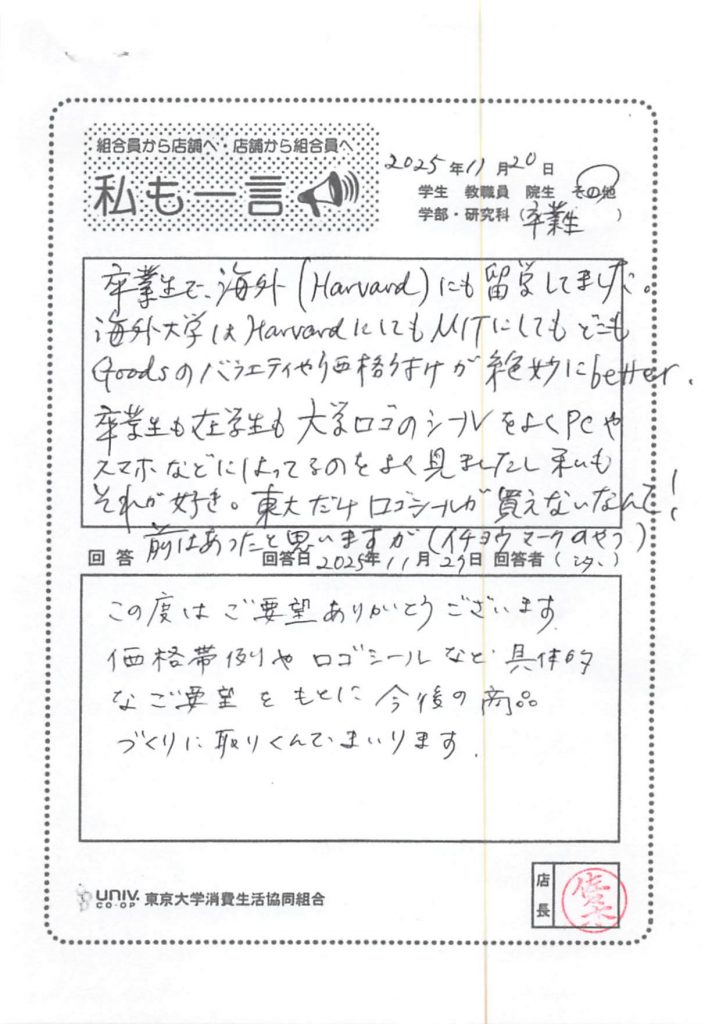 組合員から店舗へ・店舗から組合員へ
私も一言
2025年11月20日
学生 教職員 院生 その他
学部・研究科(卒業生)
卒業生で、海外(Harvard)にも留学してました。
海外大学はHarvardにしてもMITにしてもどこも
Goodsのバラエティや価格分けが絶妙にbetter.
卒業生も在学生も大学ロゴのシールをよくPCや
スマホなどにはってるのをよく見ましたし私も
それが好き。東大だけロゴシールが買えないなんて!
前はあったと思いますが(イチョウマークのやつ)
回答 回答日2025年11月27日 回答者( )
この度はご要望ありがとうございます.
価格帯例やロゴシールなど具体的
なご要望をもとに今後の商品
づくりに取りくんでまいります.
UNIV.
CO-OP
東京大学消費生活協同組合
店長